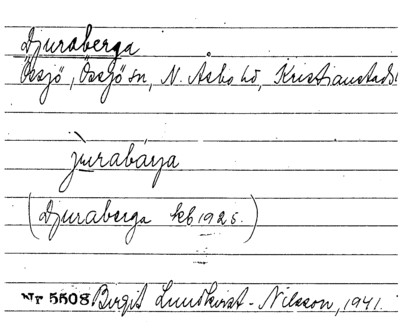 Djuraberga
Össjö, Össjö sn, N. Åsbo hd, Kristianstads
jùrabárɣa
(Djuraberga kb 1925.)
Nr 5508 Birgit Lundkvist-Nilsson, 1941.